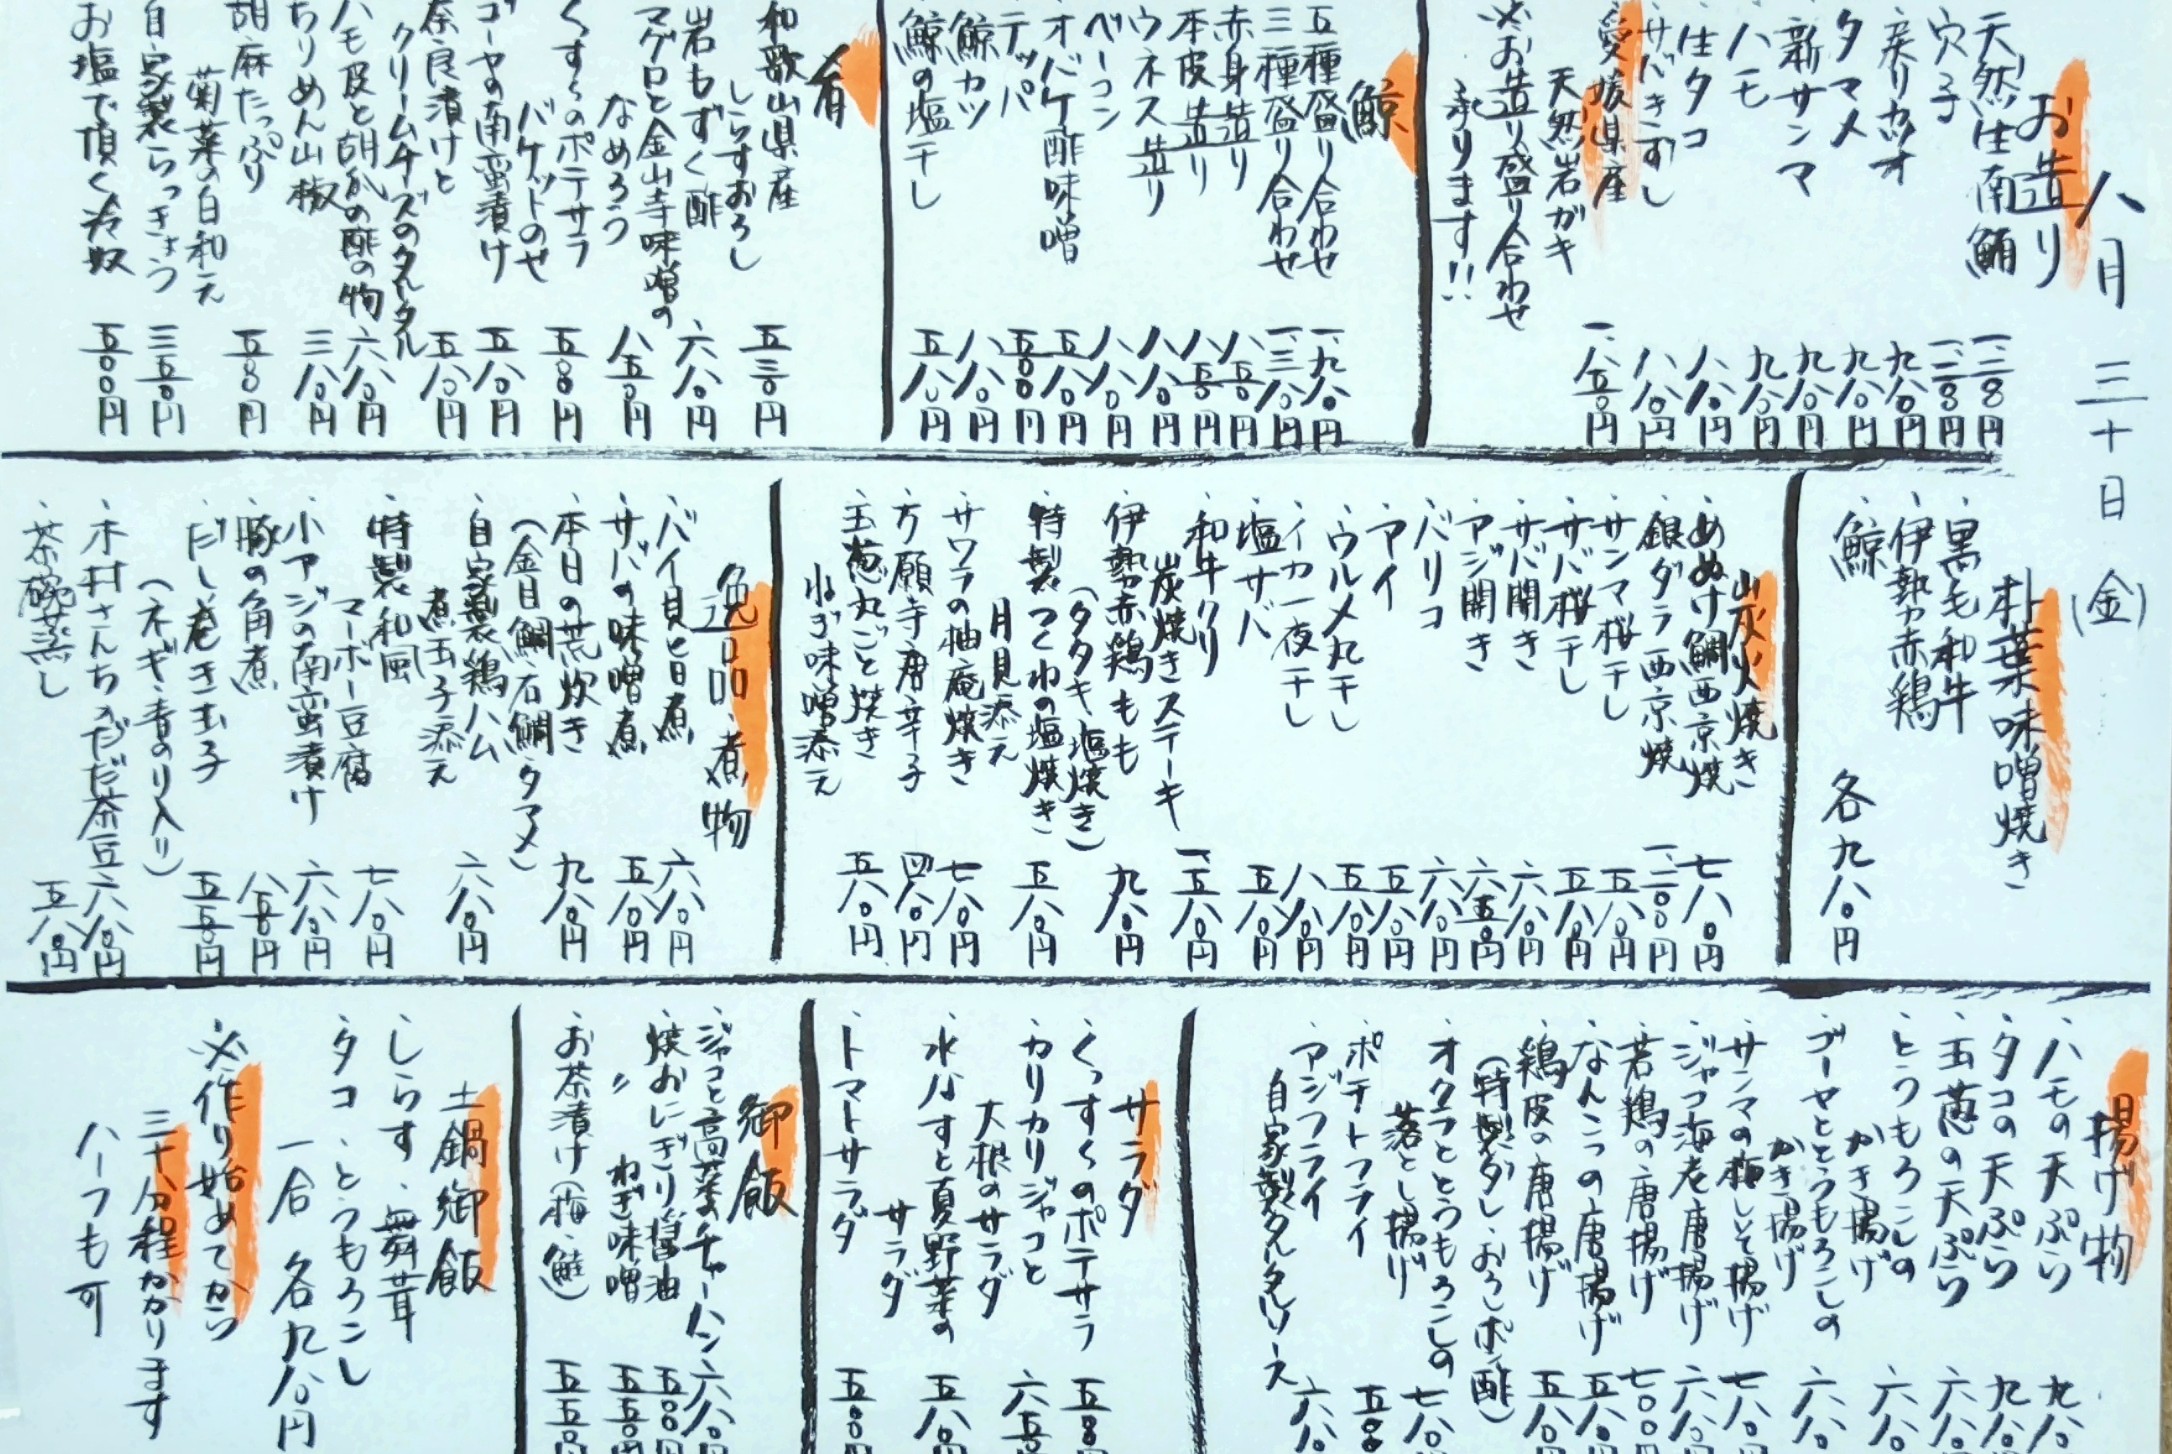 八月三十日(金)
お造り
・天然生南鮪 一、二八〇円
・穴子 一、二八〇円
・戻りカツオ 九八〇円
・タマメ 九八〇円
・新サンマ 九八〇円
・ハモ 九八〇円
・生タコ 八八〇円
・サバきずし 八八〇円
愛媛県産
天然岩ガキ 一、八五〇円
※お造り盛り合わせ
承ります!!
鯨
五種盛り合わせ 一、九八〇円
三種盛り合わせ 一、三八〇円
赤身造り 八五〇円
本皮造り 八五〇円
ウネス造り 八八〇円
ベーコン 八八〇円
オバケ酢味噌 五八〇円
テッパ 五〇〇円
鯨カツ 八八〇円
鯨の塩干し 五八〇円
肴
和歌山県産
しらすおろし 五三〇円
岩もずく酢 六八〇円
マグロと金山寺味噌の
なめろう 八五〇円
くすくすのポテサラ
バケットのせ 五八〇円
ゴーヤの南蛮漬け 五八〇円
奈良漬けと
クリームチーズのタルタル 五八〇円
ハモ皮と胡瓜の酢の物 六八〇円
ちりめん山椒 三八〇円
胡麻たっぷり
菊菜の白和え 五八〇円
自家製らっきょう 三五〇円
お塩で頂く冷奴 五〇〇円
朴葉味噌焼き
・黒毛和牛
・伊勢赤鶏
・鯨
各九八〇円
炭火焼き
・めぬけ鯛西京焼 七八〇円
・銀ダラ西京焼 一、二〇〇円
・サンマ桜干し 五八〇円
・サバ桜干し 五八〇円
・サバ開き 六八〇円
・アジ開き 六五〇円
・バリコ 六八〇円
・アイ 五八〇円
・ウルメ丸干し 五八〇円
・イカ一夜干し 八八〇円
・塩サバ 五八〇円
・和牛クリ
炭焼きステーキ 一、五八〇円
・伊勢赤鶏もも
(タタキ、塩焼き) 九八〇円
・特製つくねの塩焼き
月見添え 五八〇円
・サワラの柚庵焼き 七八〇円
・万願寺唐辛子 四八〇円
・玉葱丸ごと焼き
ねぎ味噌添え 五八〇円
逸品・煮物
・バイ貝旨煮 六八〇円
・サバの味噌煮 五八〇円
・本日の荒炊き
(金目鯛、石鯛、タマメ) 九八〇円
・自家製鶏ハム
煮玉子添え 六八〇円
・特製和風
マーボー豆腐 七八〇円
・小アジの南蛮漬け 六八〇円
・豚の角煮 八五〇円
・だし巻き玉子
(ネギ・青のり入り) 五五〇円
・木村さんちのだだ茶豆 六八〇円
・茶碗蒸し 五八〇円
揚げ物
・ハモの天ぷら 九八〇
・タコの天ぷら 九八〇
・玉葱の天ぷら 六八〇
・とうもろこしの
かき揚げ 六八〇
・ゴーヤととうもろこしの
かき揚げ 六八〇
・サンマの梅しそ揚げ 七八〇
・ジャコ海老唐揚げ 六八〇円
・若鶏の唐揚げ 七〇〇円
・なんこつの唐揚げ 五八〇円
・鶏皮の唐揚げ 五八〇円
(特製ダレ、おろしポン酢)
・オクラととうもろこしの
落とし揚げ 七八〇
・ポテトフライ 五〇〇
・アジフライ
自家製タルタルソース 六八〇
サラダ
・くすくすのポテサラ 五八〇
・カリカリジャコと
大根のサラダ 六五〇
・水ナスと夏野菜の
サラダ 五八〇
・トマトサラダ 五〇〇
御飯
・ジャコと高菜のチャーハン 六八〇円
・焼おにぎり醤油 五〇〇円
〃 ねぎ味噌 五五〇円
・お茶漬け(梅、鮭) 五五〇
土鍋御飯
・しらす・舞茸
・タコ・とうもろこし
一合 各九八〇円
※作り始めてから
三十分程かかります
ハーフも可